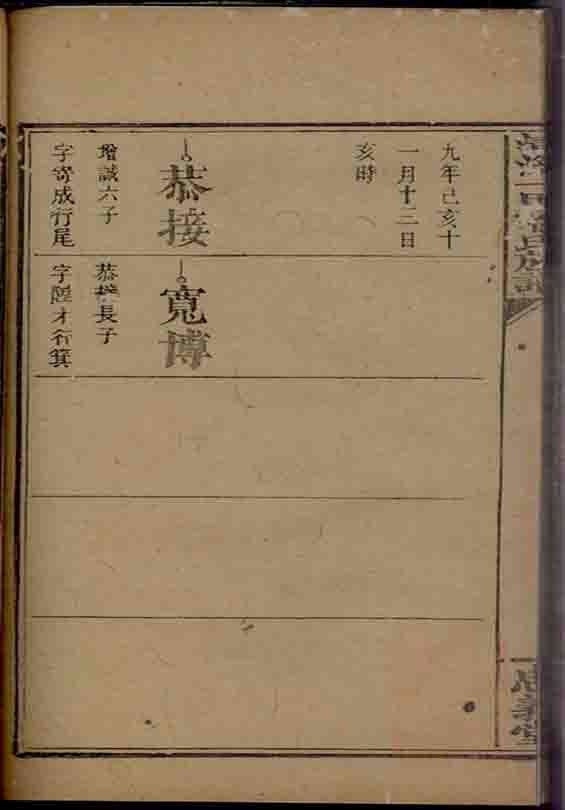 九年己亥十
一月十三日
亥時
恭接
增誠六子
字寄成行尾
寬博
恭接長子
字陞才行箕
義堂